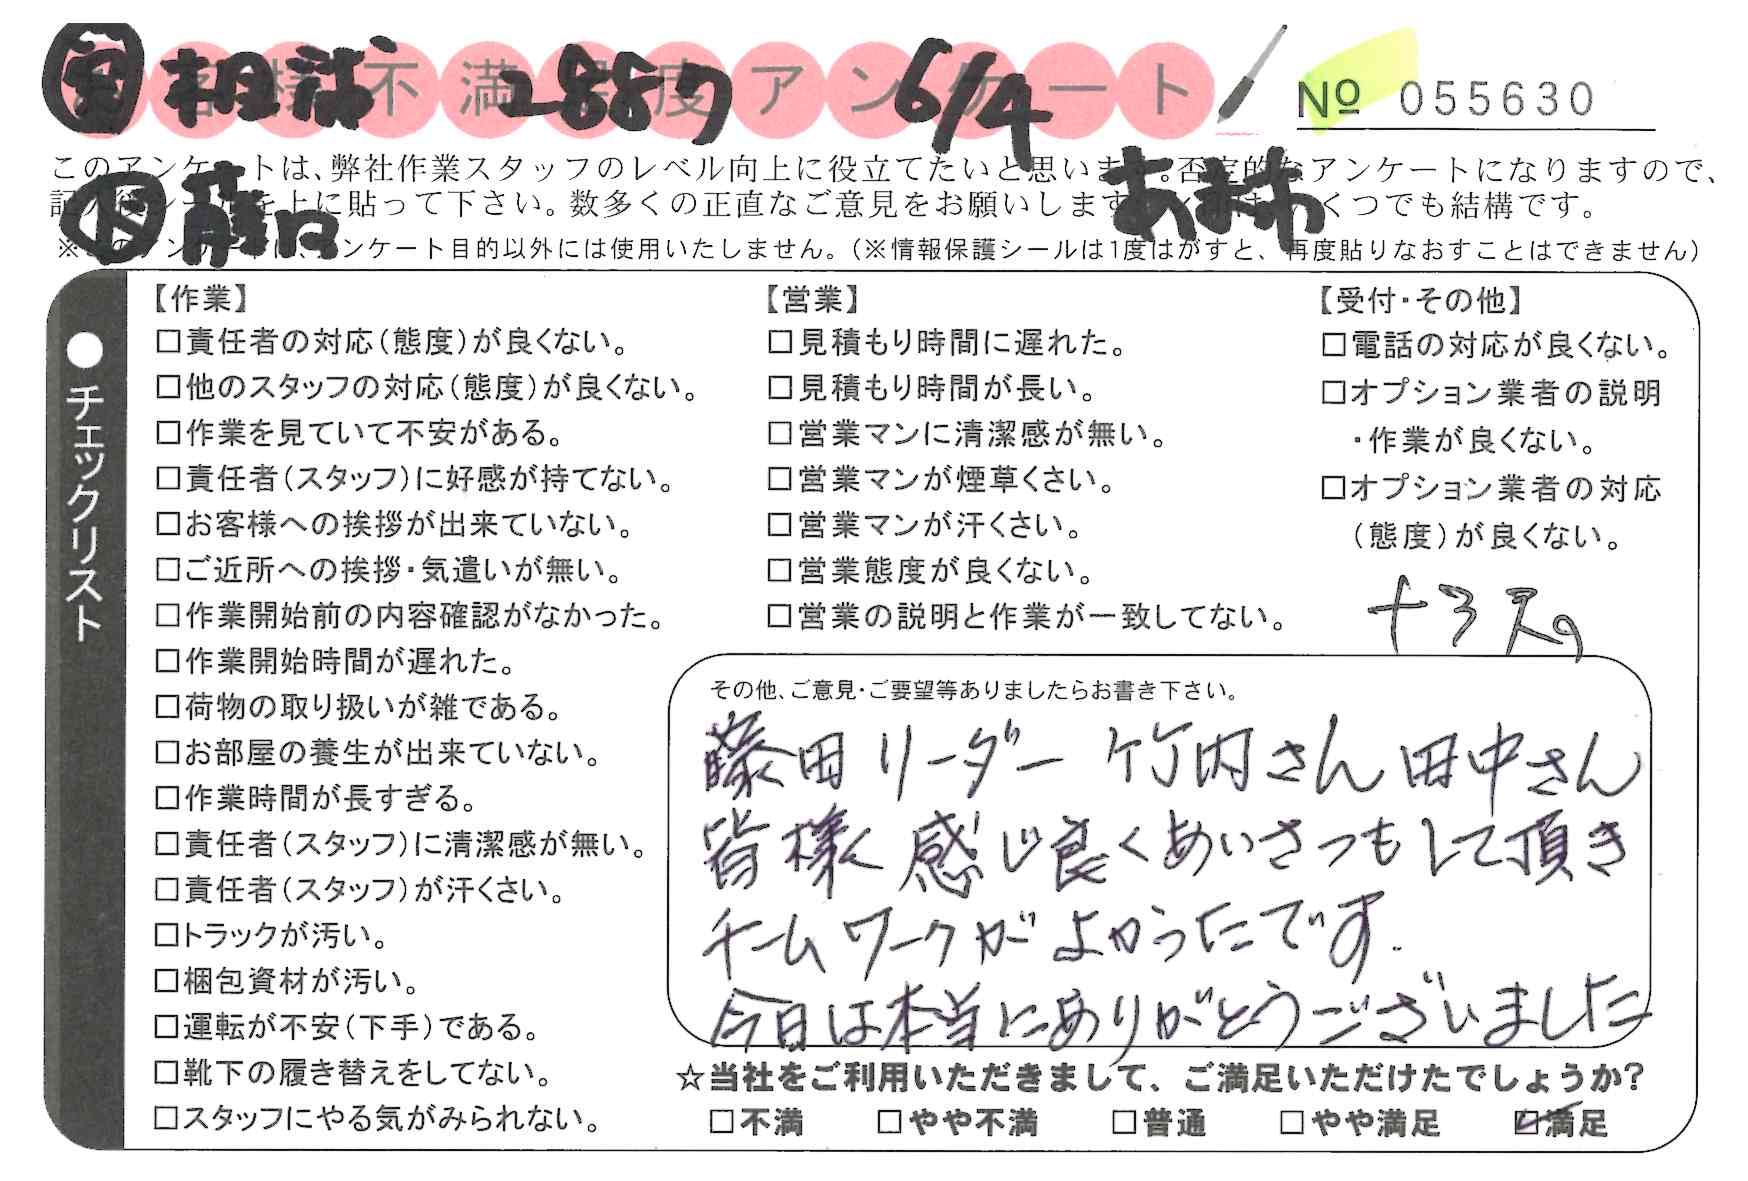 お客様不満足度アンケート
2887
6/4
No 055630
このアンケートは、弊社作業スタッフのレベル向上に役立てたいと思います。否定的なアンケートになりますので、
記入後シールを上に貼って下さい。数多くの正直なご意見をお願いします
くつでも結構です。
あま市
※このアンケートは、アンケート目的以外には使用いたしません。(※情報保護シールは1度はがすと、再度貼りなおすことはできません)
●チェックリスト
【作業】
□責任者の対応(態度)が良くない。
□他のスタッフの対応(態度)が良くない。
□作業を見ていて不安がある。
□責任者(スタッフ)に好感が持てない。
□お客様への挨拶が出来ていない。
□ご近所への挨拶・気遣いが無い。
□作業開始前の内容確認がなかった。
□作業開始時間が遅れた。
□荷物の取り扱いが雑である。
□お部屋の養生が出来ていない。
□作業時間が長すぎる。
□責任者(スタッフ)に清潔感が無い。
□責任者(スタッフ)が汗くさい。
□トラックが汚い。
□梱包資材が汚い。
□運転が不安(下手)である。
□靴下の履き替えをしてない。
□スタッフにやる気がみられない。
【営業】
□見積もり時間に遅れた。
□見積もり時間が長い。
□営業マンに清潔感が無い。
□営業マンが煙草くさい。
□営業マンが汗くさい。
□営業態度が良くない。
□営業の説明と作業が一致してない。
【受付・その他】
□電話の対応が良くない。
□オプション業者の説明
・作業が良くない。
□オプション業者の対応
(態度)が良くない。
その他、ご意見・ご要望等ありましたらお書き下さい。
藤田リーダー 竹内さん 田中さん
皆様く感じ良くあいさつもして頂き
チームワークがよかったです.
今日は本当にありがとうございました
☆当社をご利用いただきまして、ご満足いただけたでしょうか?
□不満 □やや不満 □普通 □やや満足 ☑満足